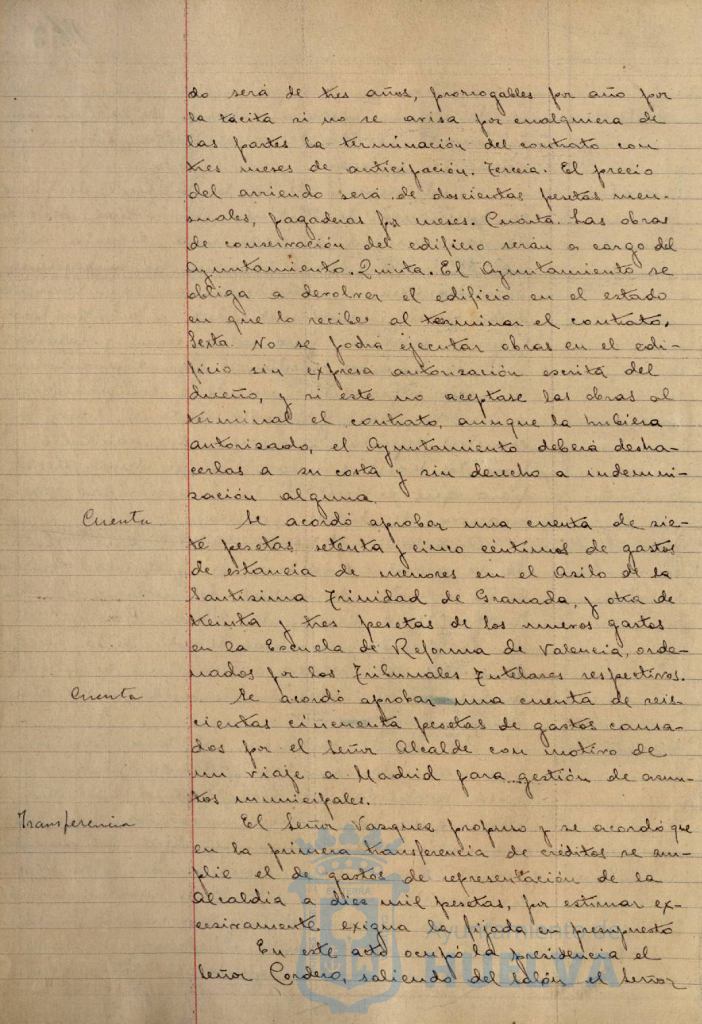 do será de tres años, prorrogables por año por
la tácita si no se avisa por cualquiera de
las partes la terminación del contrato con
tres meses de anticipación. Tercera. El precio
del arriendo será de doscientas pesetas men-
suales, pagaderas por meses. Cuarta. Las obras
de conservación del edificio serán a cargo del
Ayuntamiento. Quinta. El Ayuntamiento se
obliga a devolver el edificio en el estado
en que lo recibe al terminar el contrato.
Sexta. No se podrá ejecutar obras en el edi-
ficio sin expresa autorización escrita del
dueño, y si este no aceptase las obras al
terminal el contrato, aunque la hubiera
autorizado, el Ayuntamiento deberá desha-
cerlas a su costa y sin derecho a indemni-
zación alguna.
Cuenta Se acordó aprobar una cuenta de sie-
te pesetas setenta y cinco céntimos de gastos
de estancia de menores en el Asilo de la
Santísima Trinidad de Granada, y otra de
treinta y tres pesetas de los mismos gastos
en la Escuela de Reforma de Valencia, orde-
nados por los Tribunales Tutelares respectivos.
Cuenta Se acordó aprobar una cuenta de seis-
cientas cincuenta pesetas de gastos causa-
dos por el Señor Alcalde con motivo de
un viaje a Madrid para gestión de asun-
tos municipales.
Transferencia El Señor Vazquez propuso y se acordó que
en la primera transferencia de créditos se am-
plie el de gastos de representación de la
Alcaldia a diez mil pesetas, por estimar ex-
cesivamente exigua la fijada en presupuesto
En este acto ocupó la presidencia el
Señor Cordero, saliendo del salón el Señor
HUELVA